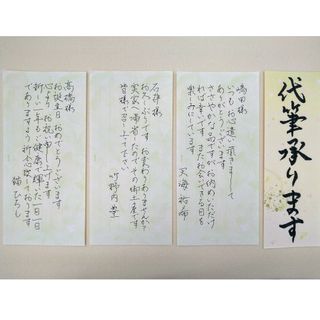 代筆承ります
嶋田様
いつもお心遣い頂きまして
ありがとうございます
ささやかな品ですが お納めいただけ
れば幸です またお会いできる日を
楽しみにしています
天海祐希
石井様
お久しぶりです おかわりありませんか?
実家へ帰省したのでその御土産です
皆様で召し上って下さい
竹野内豊
高橋様
お誕生日おめでとうございます
心よりお祝い申し上げます
新しい一年もご健康で輝いた一日一日
でありますよう祈念致しております
猫ひろし